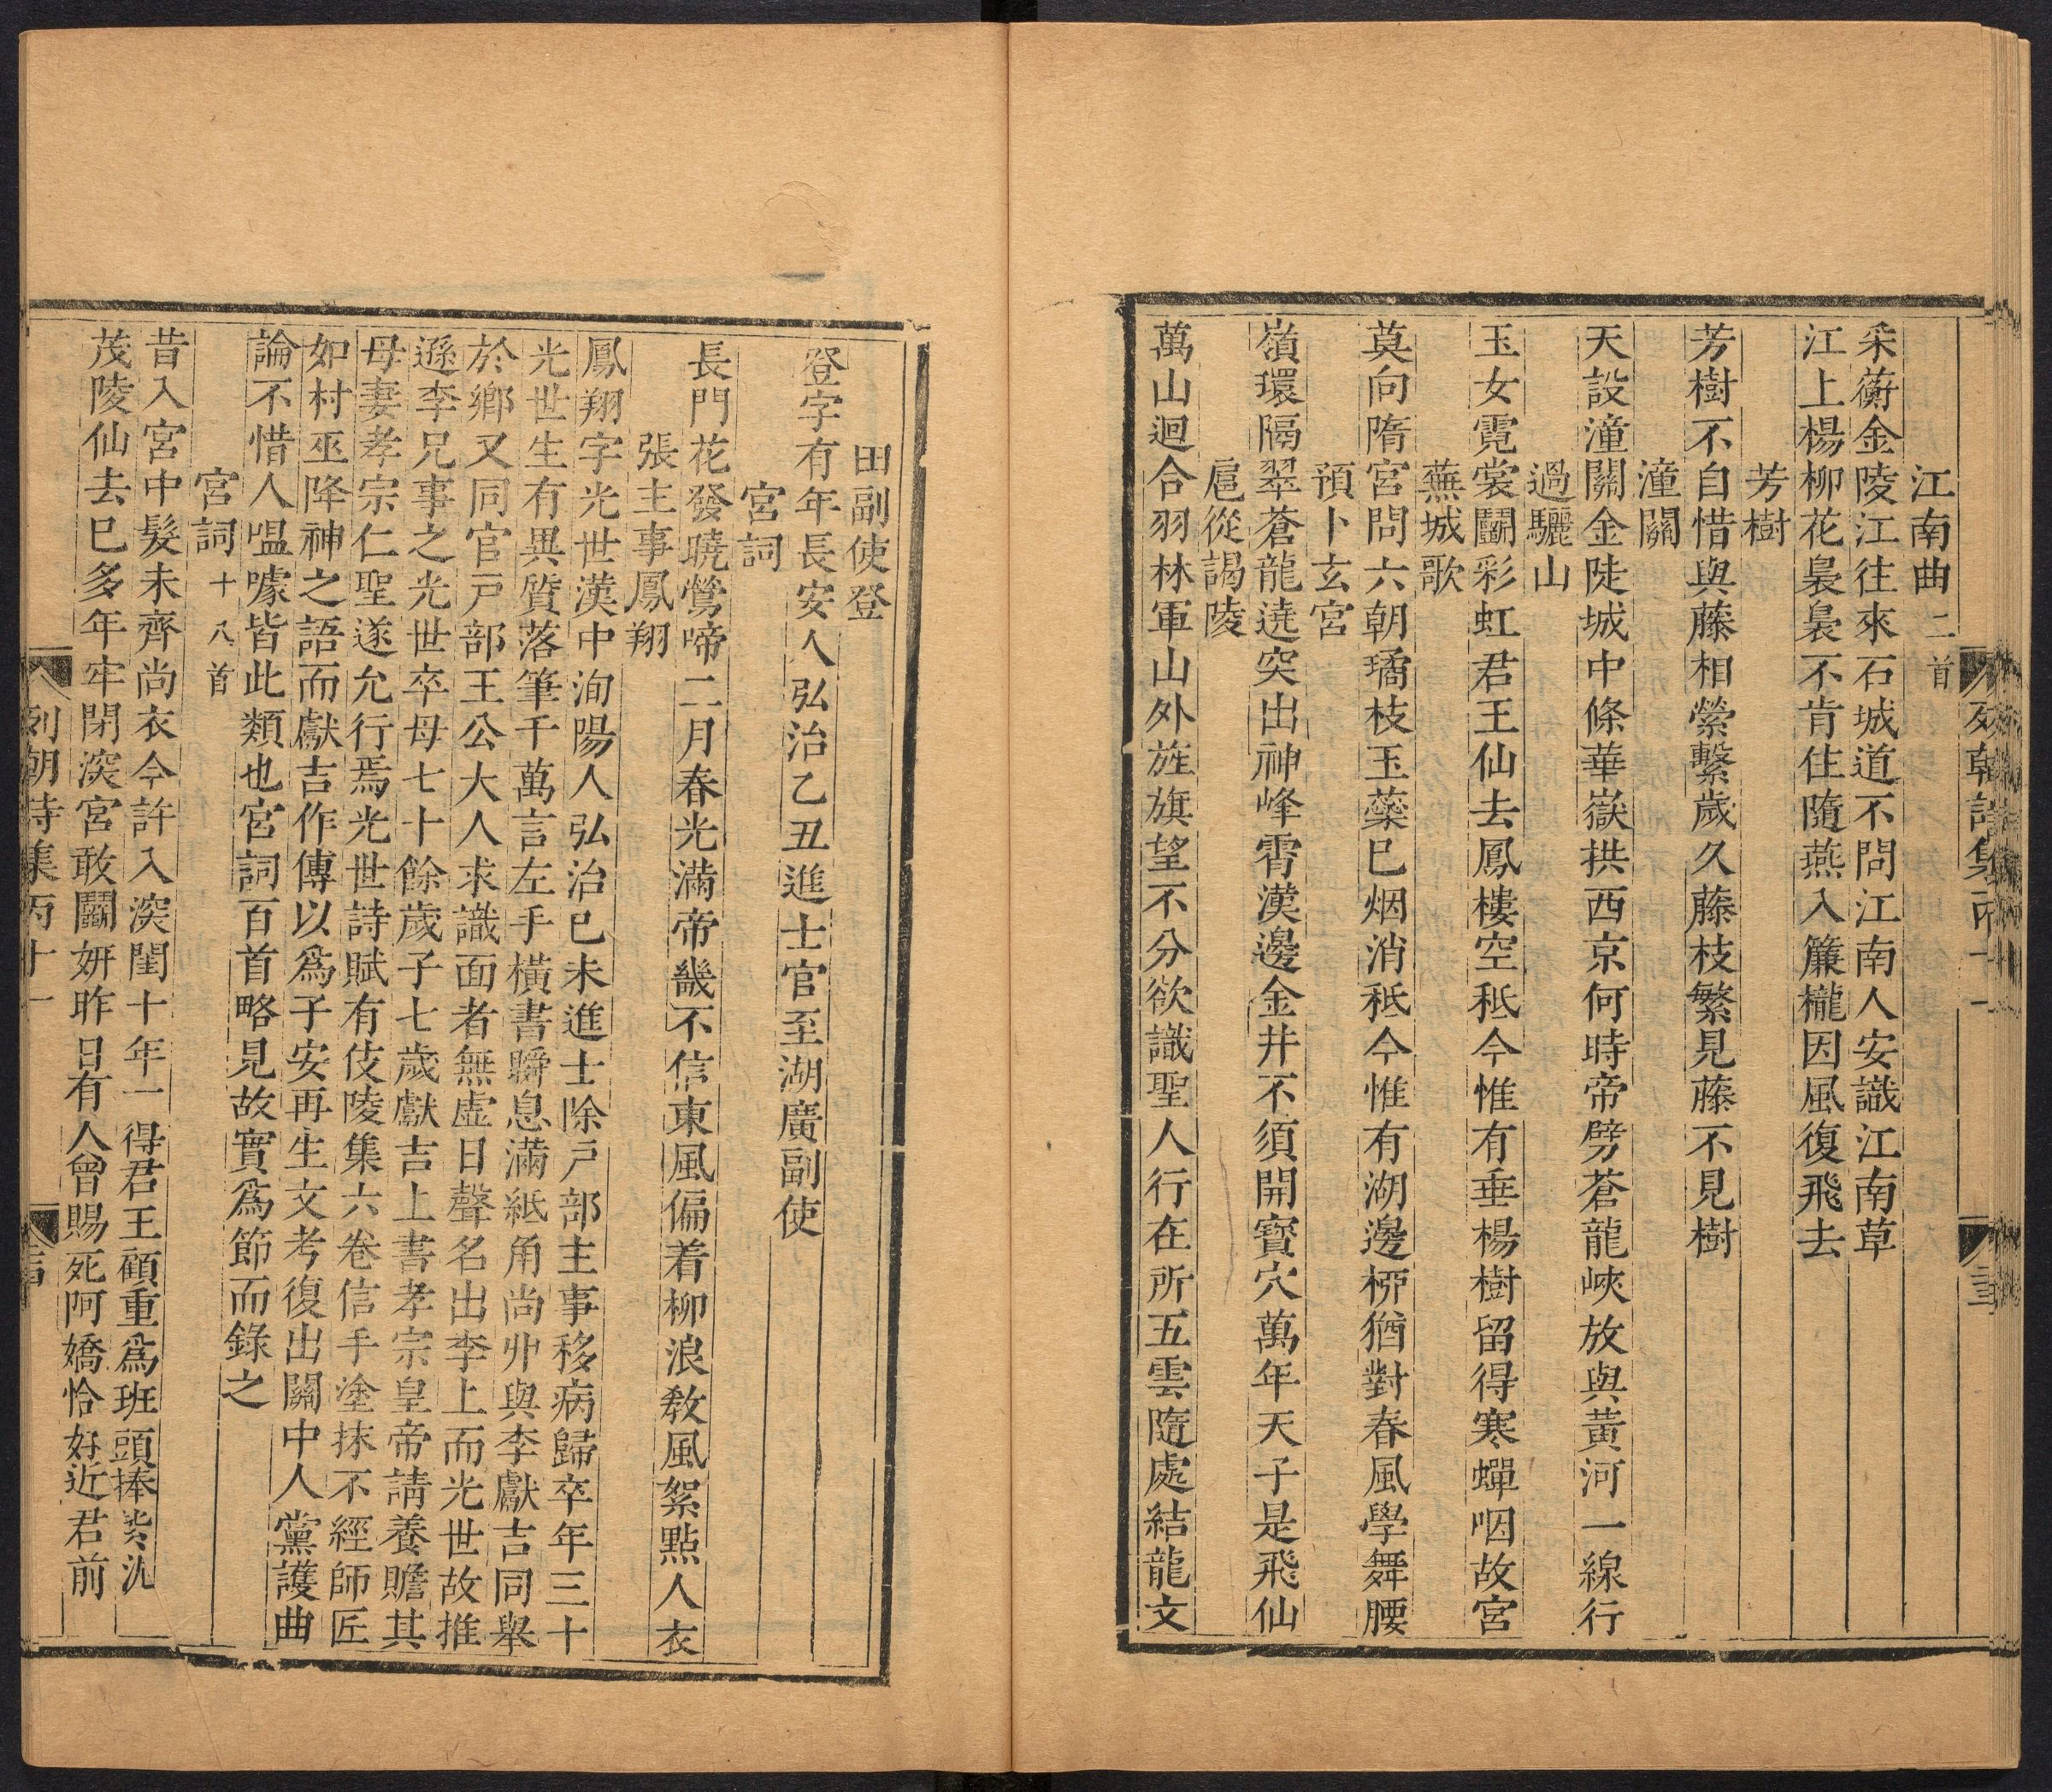 江南曲二首
采蘅金陵江往來石城道不問江南人安識江南草
江上楊柳花裊裊不肯住隨燕入簾櫳因風復飛去
芳樹
芳樹不自惜與藤相縈繫歲久藤枝繁見藤不見樹
潼關
天設潼關金陡城中條華嶽拱西京何時帝劈蒼龍峽放與黃河一線行
過驪山
玉女霓裳鬭彩虹君王仙去鳳樓空秪今惟有垂楊樹留得寒蟬咽故宮
蕪城歌
莫向隋宮問六朝璚枝玉蘂巳烟消秪今惟有湖邊栁猶對春風學舞腰
預卜玄宮
嶺環隔翠蒼龍遶突出神峰霄漢邊金井不須開寶穴萬年天子是飛仙
扈從謁陵
萬山迴合羽林軍山外旌旗望不分欲識聖人行在所五雲隨處結龍文
田副使登
登字有年長安人弘治乙丑進士官至湖廣副使
宮詞
長門花發曉鶯啼二月春光滿帝畿不信東風偏着柳浪教風絮點人衣
張主事鳳翔
鳳翔字光世漢中洵陽人弘治巳未進士除戸部主事移病歸卒年三十
光世生有異質落筆千萬言左手橫書瞬息滿紙角尚丱與李獻吉同舉
於鄉又同官戸部王公大人求識面者無虛日聲名出李上而光世故推
遜李兄事之光世卒母七十餘歲子七歲獻吉上書孝宗皇帝請養贍其
母妻孝宗仁聖遂允行焉光世詩賦有伎陵集六卷信手塗抹不經師匠
如村巫降神之語而獻吉作傳以爲子安再生文考復出關中人黨護曲
論不惜人嗢噱皆此類也宮詞百首略見故實爲節而錄之
宮詞十八首
昔入宮中髮未齊尚衣今許入深閨十年一得君王顧重爲班頭捧紫泥
茂陵仙去巳多年牢閉深宮敢鬭妍昨日有人曾賜死阿嬌恰好近君前
列朝詩集丙十一